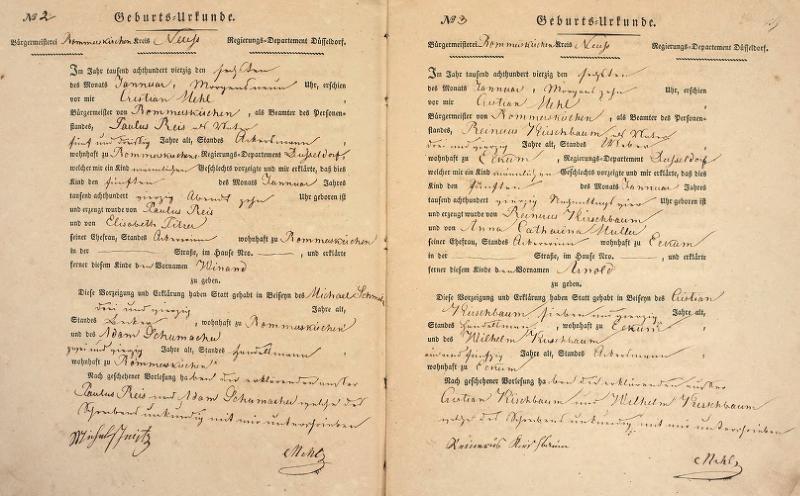 № 2 Geburts-Urkunde.
Bürgermeisterei Rommerskirchen Kreis Neuss Regierungs-Departement Düsseldorf.
Im Jahr tausend achthundert vierzig den sechsten
des Monats Januar, Morgens neun Uhr, erschien
vor mir Cristian Mehl
Bürgermeister von Rommerskirchen, als Beamter des Personen-
standes, Paulus Reis als Vater
fünf und dreißig Jahre alt, Standes Ackersmann,
wohnhaft zu Rommerskirchen, Regierungs-Departement Dusseldorf,
welcher mir ein Kind männlichen Geschlechts vorzeigte und mir erklärte, daß dies
Kind den fünften des Monats Januar Jahres
tausend achthundert vierzig Abends zehn Uhr geboren ist
und erzeugt wurde von Paulus Reis
und von Elisabeth
seiner Ehefrau, Standes Ackererinn wohnhaft zu Rommerskirchen
in der — Straße, im Hause Nro. —, und erklärte
ferner diesem Kinde den Vornamen Winand
zu geben.
Diese Vorzeigung und Erklärung haben Statt gehabt in Beiseyn des Michael
drei und vierzig Jahre alt,
Standes Becker, wohnhaft zu Rommerskirchen
und des Adam Schumacher
zwei und vierzig Jahre alt, Standes Handelsmann,
wohnhaft zu Rommerskirchen
Nach geschehener Vorlesung haben die erklärenden ausser
Paulus Reis und Adam Schumacher welche des
Schreibens unkundig mit mir unterschrieben
Mehl
№ 3 Geburts-Urkunde.
Bürgermeisterei Rommerskirchen Kreis Neuss Regierungs-Departement Düsseldorf.
Im Jahr tausend achthundert vierzig den sechsten
des Monats Januar, Morgens zehn Uhr, erschien
vor mir Cristian Mehl
Bürgermeister von Rommerskirchen, als Beamter des Personen-
standes, Reinerus Kirschbaum als Vater
drei und vierzig Jahre alt, Standes Weber
wohnhaft zu Eckum, Regierungs-Departement Dusseldorf
welcher mir ein Kind männlichen Geschlechts vorzeigte und mir erklärte, daß dies
Kind den fünften des Monats Januar Jahres
tausend achthundert vierzig Nachmittags vier Uhr geboren ist
und erzeugt wurde von Reinerus Kirschbaum
und von Anna Catharina Muller
seiner Ehefrau, Standes Ackererinn wohnhaft zu Eckum
in der — Straße, im Hause Nro. —, und erklärte
ferner diesem Kinde den Vornamen Arnold
zu geben.
Diese Vorzeigung und Erklärung haben Statt gehabt in Beiseyn des Cristian
Kirschbaum sieben und vierzig Jahre alt,
Standes Handelsmann, wohnhaft zu Eckum
und des Wilhelm Kirschbaum
ein und fünfzig Jahre alt, Standes Ackersmann
wohnhaft zu Eckum
Nach geschehener Vorlesung haben die erklärenden ausser
Cristian Kirschbaum und Wilhelm Kirschbaum
welche des Schreibens unkundig mit mir unterschrieben
Reinerus Kirschbaum
Mehl